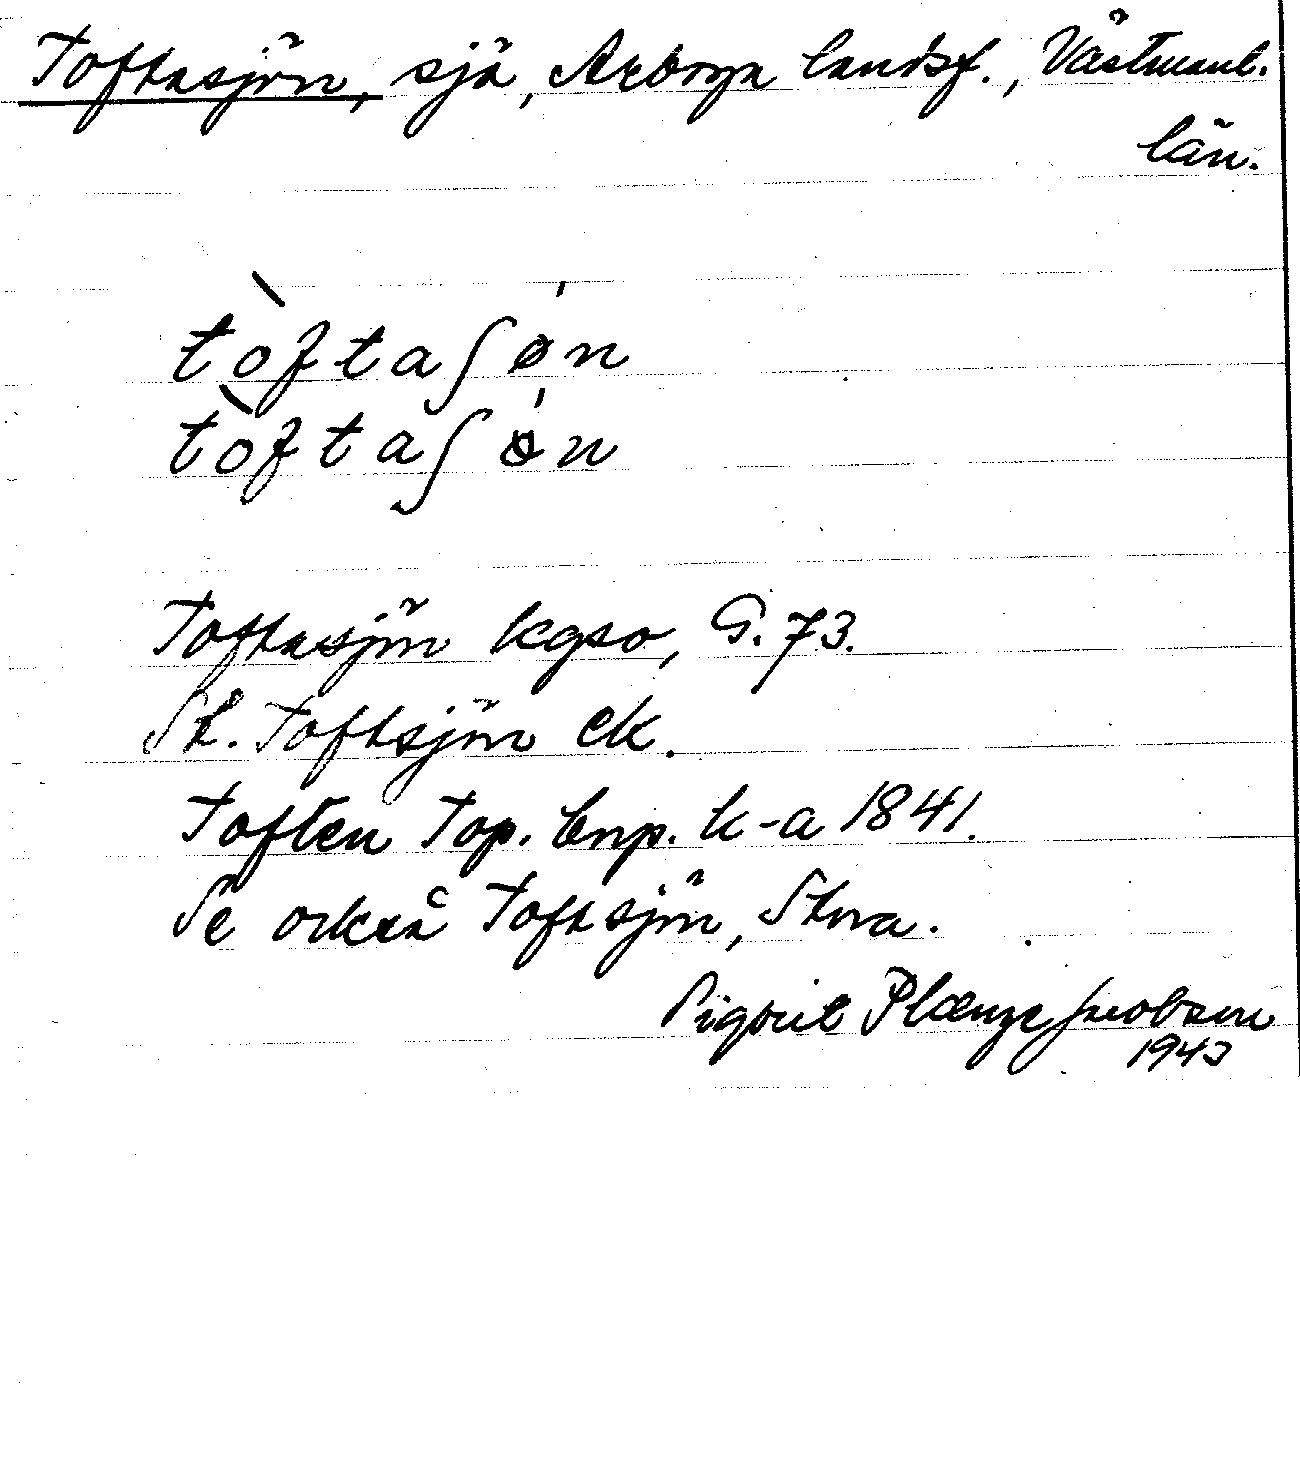 Toftasjön, sjö, Arboga landsf., Västmanl.
län.
tòftaʃǿn
tòftaʃǿn
Toftasjön kgso, G. 73.
St. Toftsjön ek.
Toften Top. corp. k-a 1841.
Se också Toftsjön, Stora.
Sigurd Plænge Jacobsen
1943